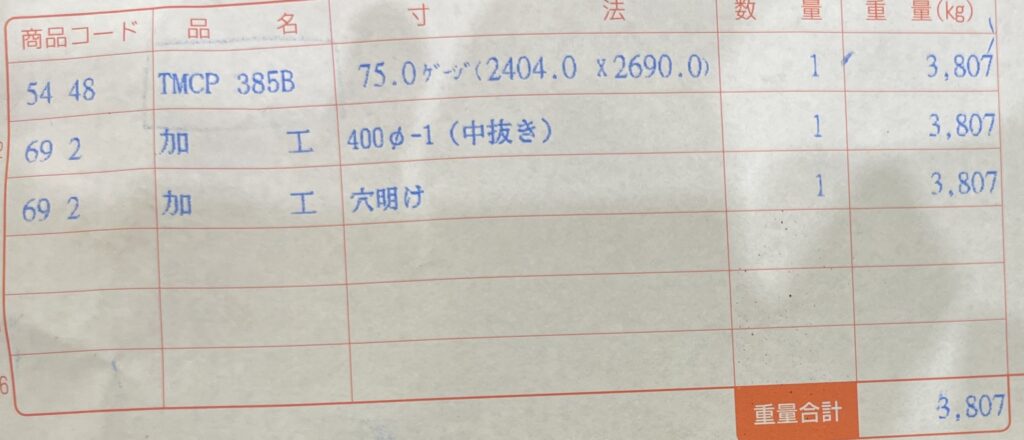 商品コード 品名 寸法 数量 重量(kg)
54 48 TMCP 385B 75.0ゲージ(2404.0 X2690.0) 1 3,807
69 2 加工 400φ-1 (中抜き) 1 3,807
69 2 加工 穴明け 1 3,807
6
重量合計 3,807